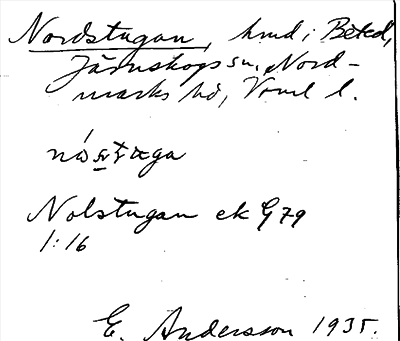 Nordstugan, hmd i Beted,
Järnskogs sn, Nord-
marks hd, Vrml l.
Nolstugan ek G79
1:16
E. Andersson 1935.